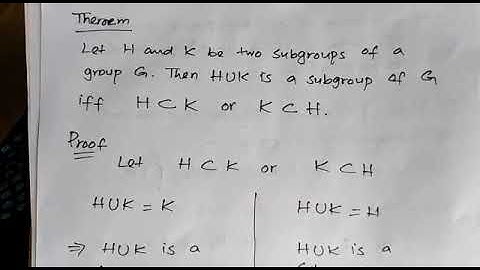 Theroem
Let H and K be two subgroups of a
group G. Then HUK is a subgroup of G
iff H ⊂ K or K ⊂ H.
Proof
Let H ⊂ K or K ⊂ H
HUK = K
HUK = H
⇒ HUK is a
HUK is a